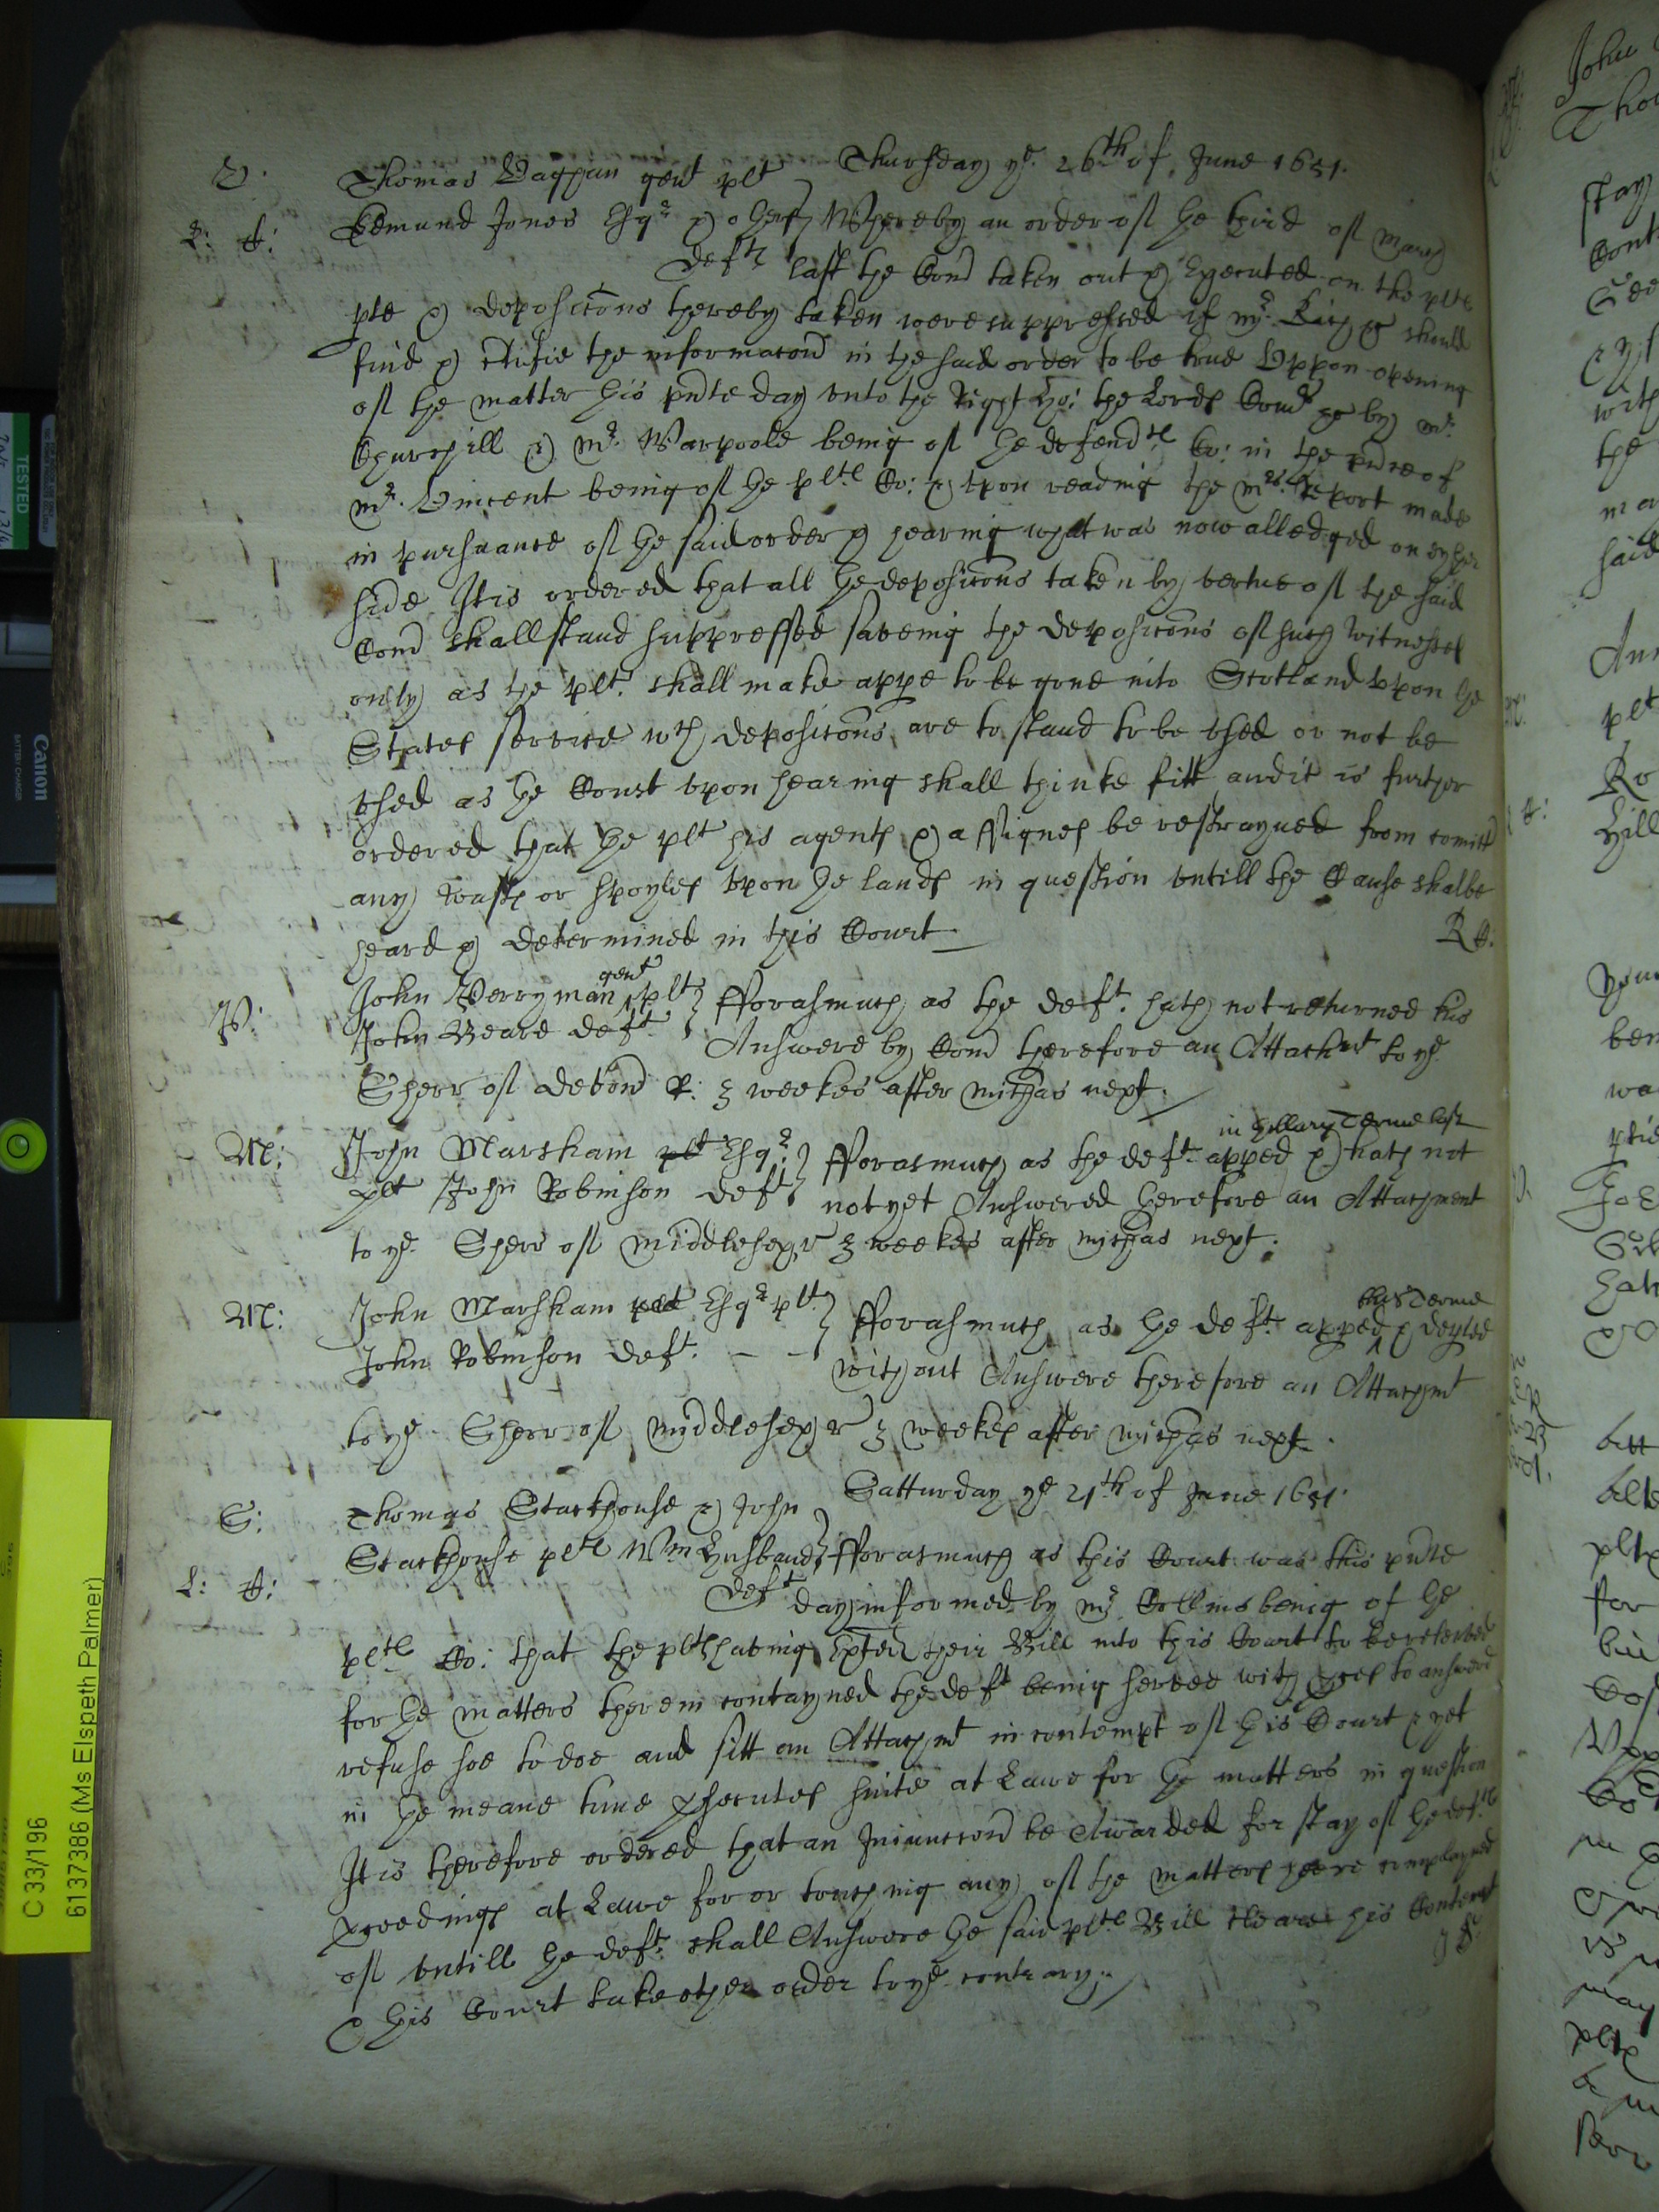 Thursday ye 26th of June 1651.
V. Thomas Vaghan gent plt
L: A: Edmund Jones Esqr & others Whereby an order of the third of March
defts last the Com̃ taken out & Executed on the plts
pte & deposic̃ons thereby taken were suppressed if mr. Rich should
find & c̃tifie the informac̃on in the said order to be true Vppon opening
of the matter this pnte day vnto the Right ho: the Lords Comrs by mr.
Churchill & mr. Warpoole being of the defendts Co: in the pnce of
mr. Vincent being of the plts Co: & vpon reading the mrs. Report made
in pursuance of the said order & hearing what was now alledged on eyther
side It is ordered that all the deposic̃ons taken by vertue of the said
Com̃ shall stand suppressed saveing the deposic̃ons of such witnesses
only as the plt. shall make appe to be gone into Scotland vpon the
States service wch deposic̃ons are to stand to be vsed or not be
vsed as the Court vpon hearing shall thinke fitt and it is further
ordered that the plt his agents & assignes be restrayned from comitt
any wasts or spoyles vpon the lands in question vntill the Cause shalbe
heard & determined in this Court
R A.
P: John Perryman gent plt } fforasmuch as the deft. hath not returned his
John Beare deft } Answere by Com̃ therefore an Attachmt to ye
Sherr of Devon̄ R: 3 weekes after Michas next.
M: John Marsham plt Esqr. } fforasmuch as the deft apped in Hillary Terme last & hath not
plt John Robinson deft } not yet Answered therefore an Attachment
to ye Sherr of Middlesex r 3 weekes after Michas next.
M: John Marsham plt Esqr plt } fforasmuch as the deft. apped this Terme & depted
John Robinson deft. - - } without Answere therefore an Attachmt
to ye Sherr of Middlesex r 3 weekes after Michas next.
Satturday ye 21th of June 1651.
S: Thomas Stackhouse & John
Stackhouse plts Wm Husband } fforasmuch as this Court was this pnte
L: A: deft day informed by mr Collins being of the
plts Co: that the plts haveing Exhted their Bill into this Court to be releeved
for the matters therein contayned the deft being served with pces to answere
refuse soe to doe and sitt an Attachmt in contempt of this Court & yet
in the meane time psecutes suite at Lawe for the matters in question
It is therefore ordered that an Iniunccon̄ be Awarded for stay of the defts
pceedings at Lawe for or touching any of the matters there complayned
of vntill the deft. shall Answere the said plts Bill cleare his Contempt
& this Court take other order to ye contrary.
TESTED
Canon
BATTERY CHARGER
C 33/196
6137386 (Ms Elspeth Palmer)